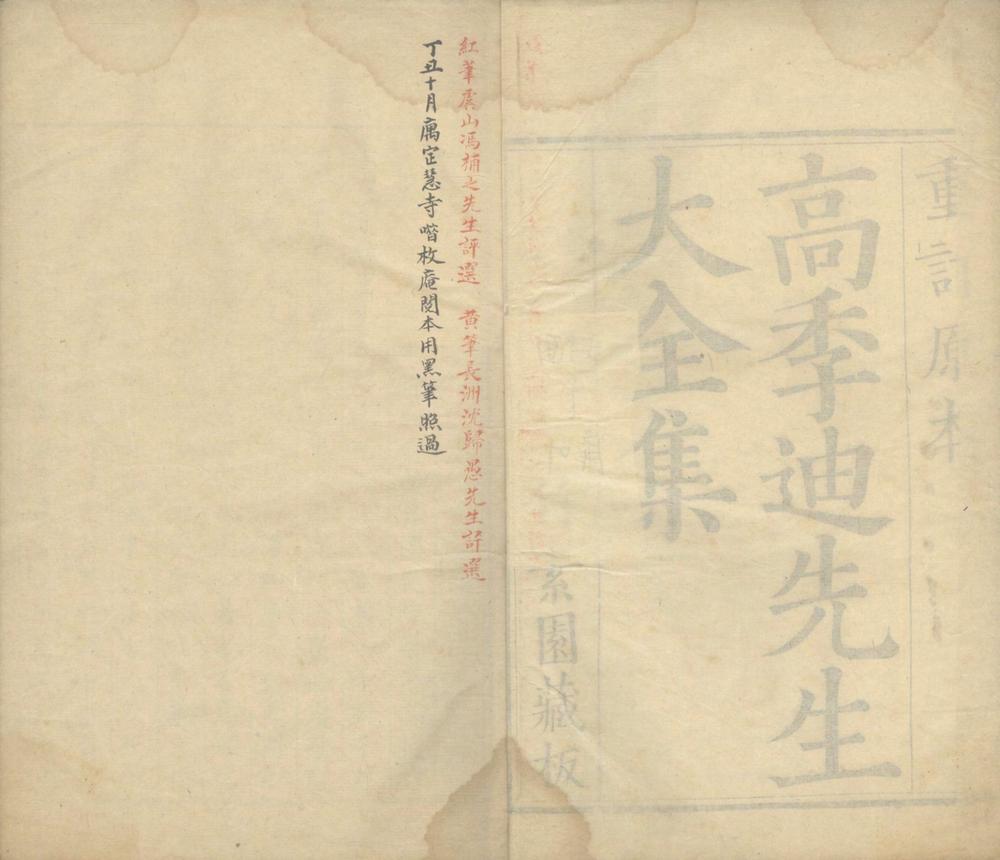 重訂原本
高季迪先生
大全集
園藏板
紅筆虞山馮補之先生評選 黄筆長洲沈歸愚先生評選
丁丑十月寓定慧寺喈枚庵閱本用黑筆照過